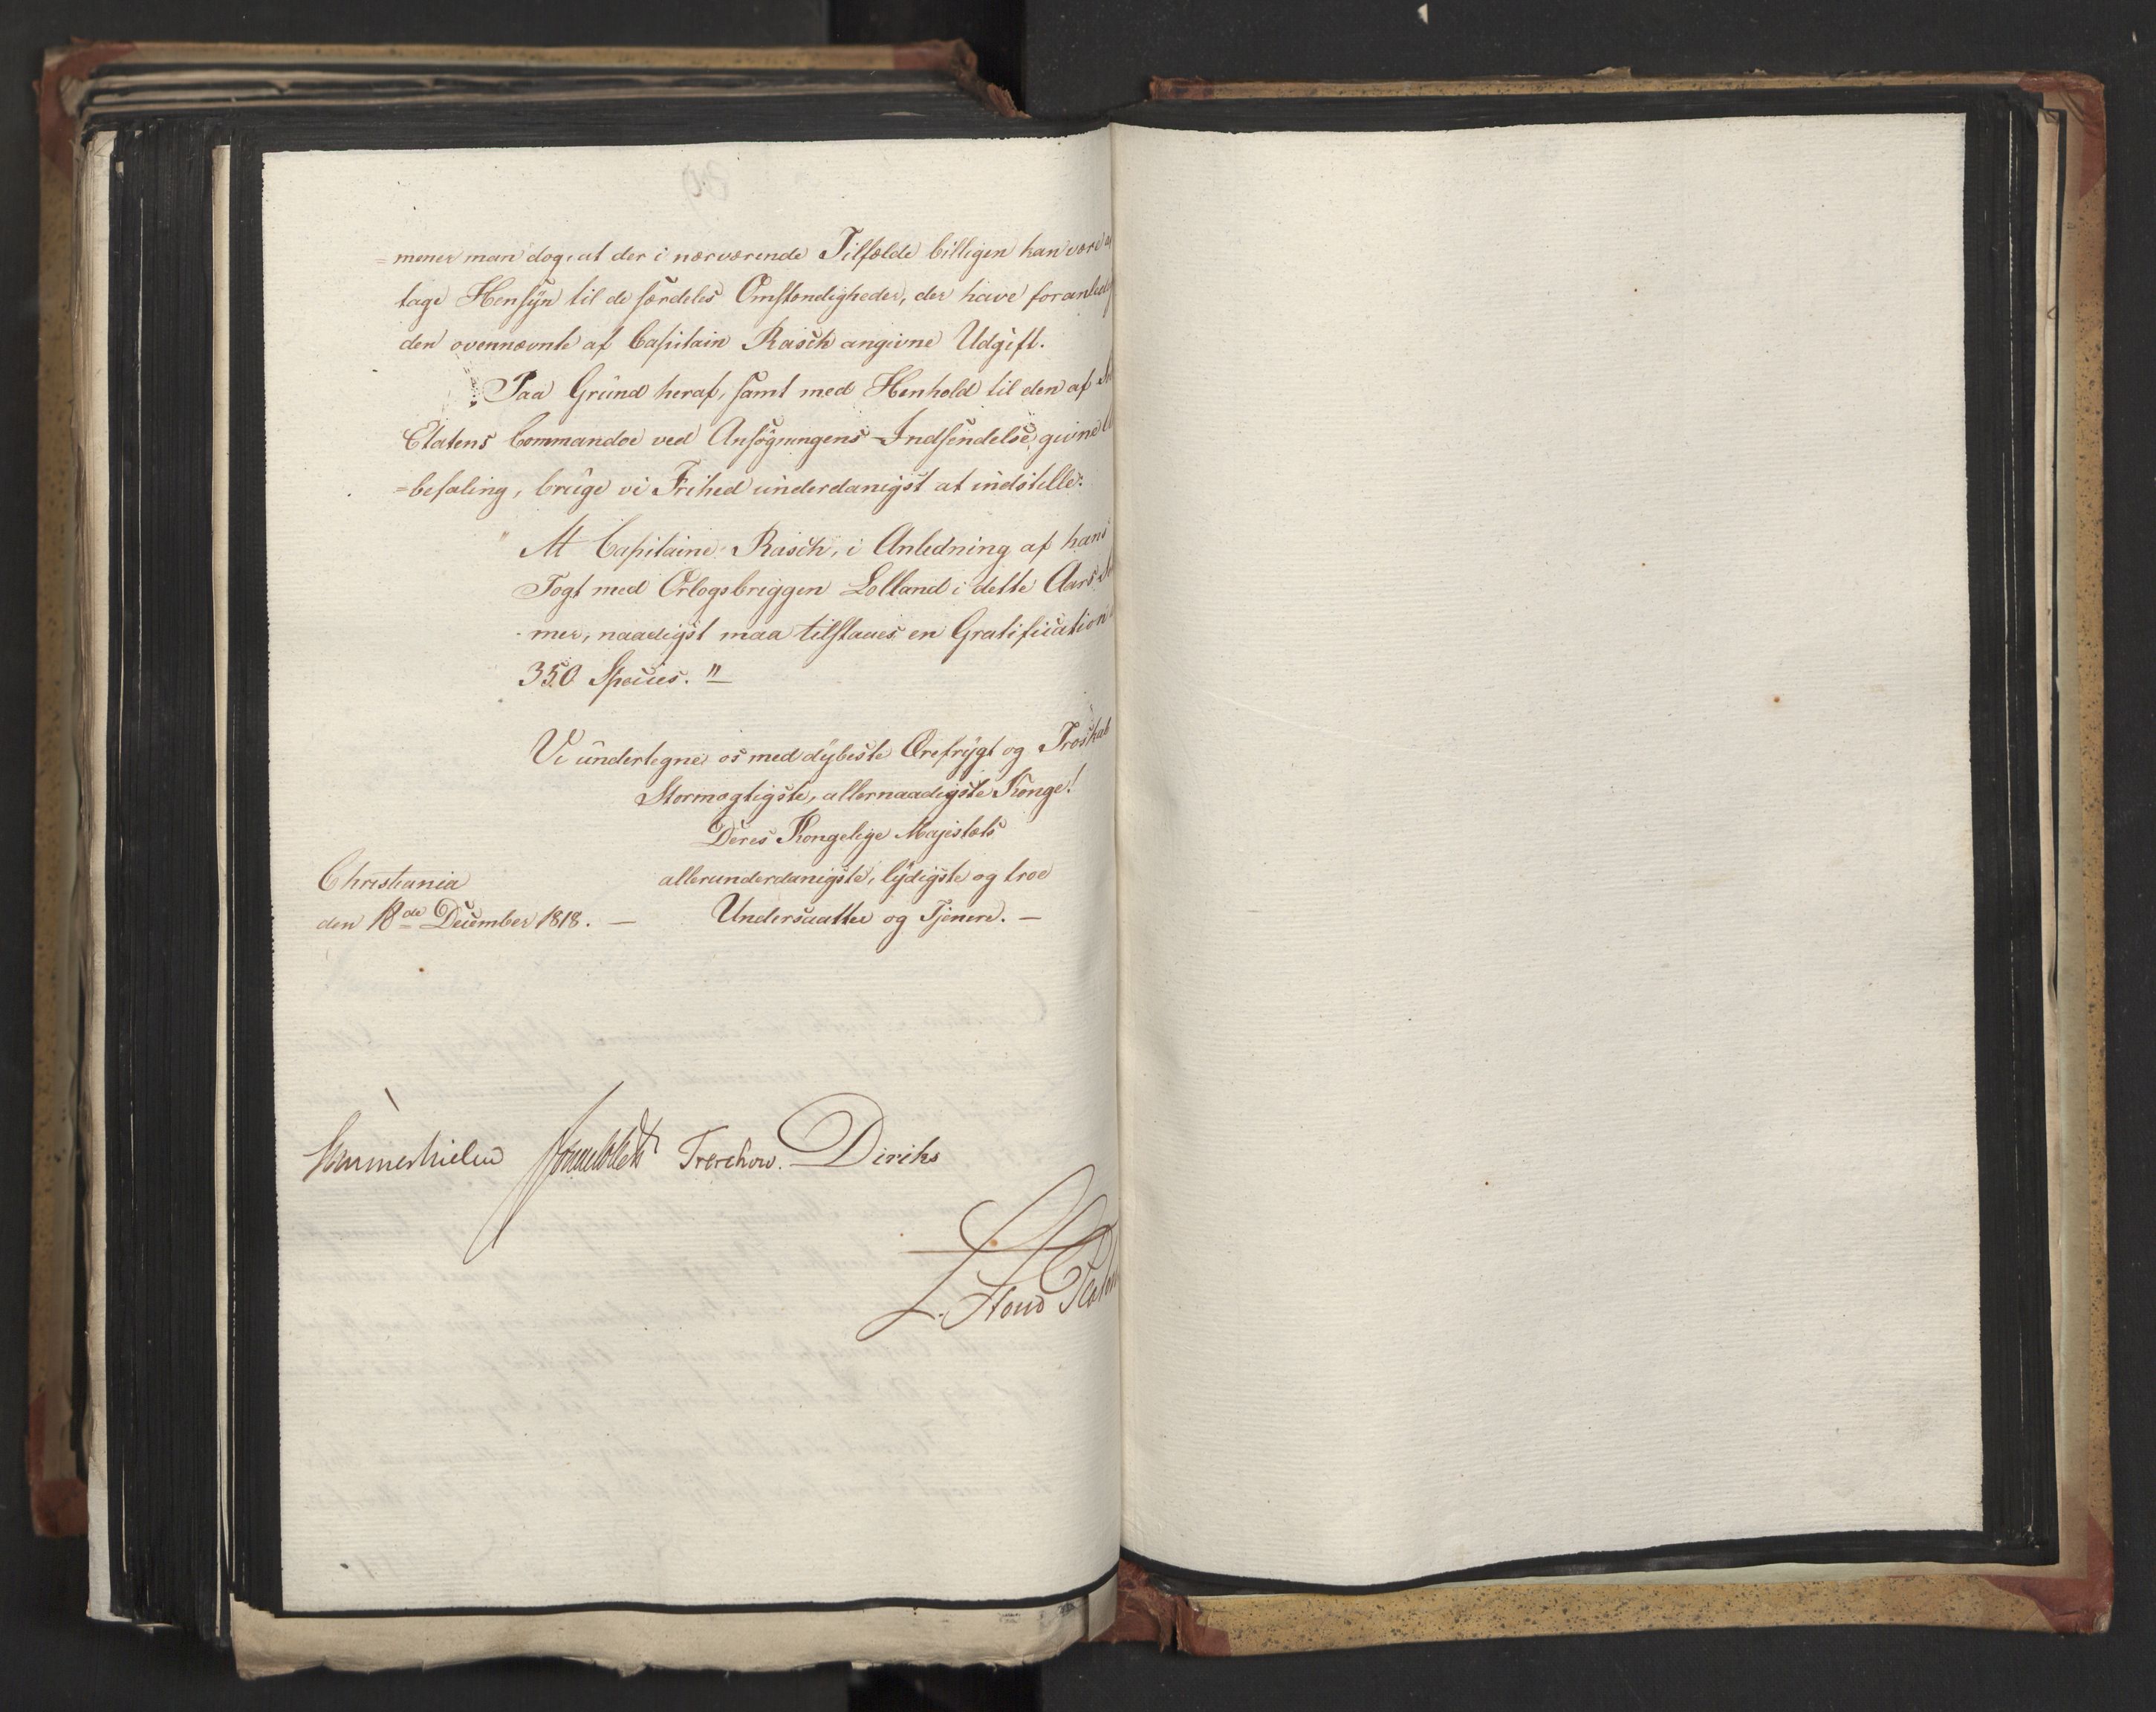 =mener man dog, at der i nærværende Tilfælde billigen kan være
tage Hensÿn til de særdeles Omstændigheder, der have foranled
den ovennævnte af Capitain Rasch angivne Udgift.
Paa Grund heraf, samt med Henhold til den af
Etatens Commandoe ved Ansøgningens Indsendelse givne
=befaling, bruge vi Frihed underdanigst at indstille:
" At Capitaine Rasch, i Anledning af hans
Togt med Orlogsbriggen Lolland i dette Aars
mer, naadigst maa tilstaaes en Gratification
350 Species. "
Vi undertegne os med dÿbeste Ærefrÿgt og Troskab
Stormægtigste, allernaadigste Konge!
Deres Kongelige Majestæts
Christiania allerunderdanigste, lÿdigste og troe
den 18de December 1818. — Undersaatter og Tjenere. —
Sommerhielm Treschow. Diriks
L. Stoud Platou